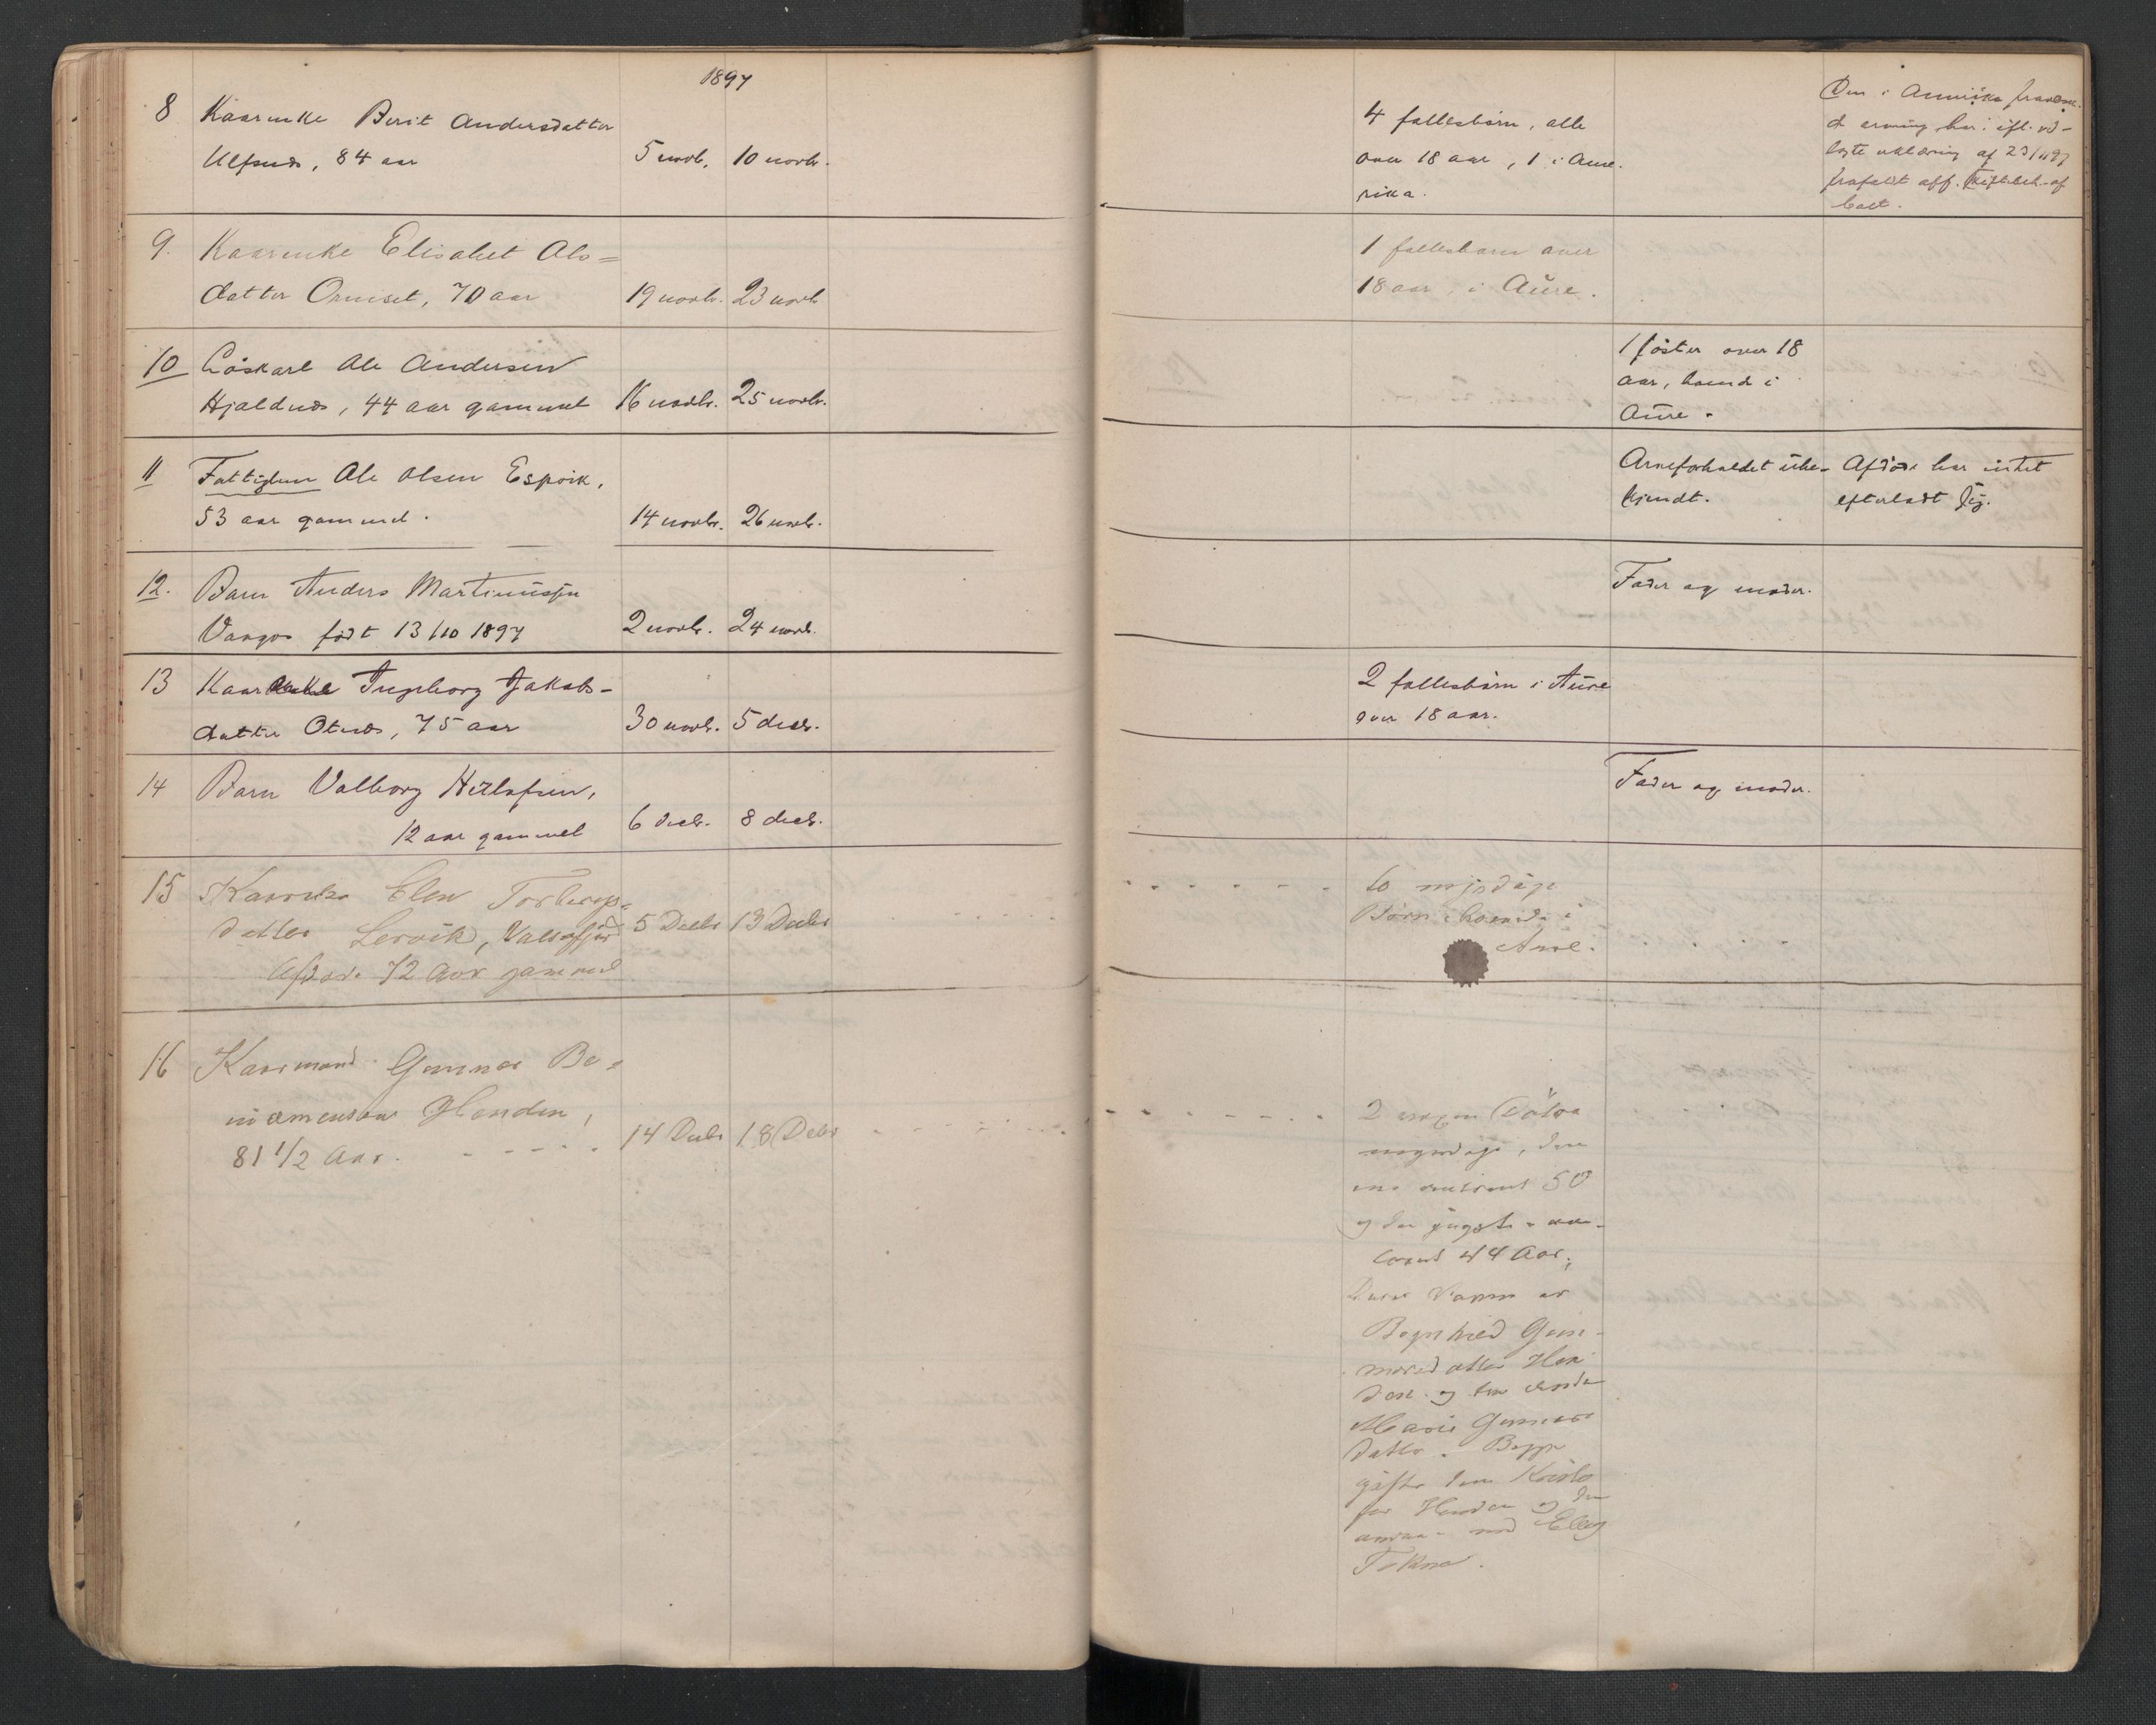 1897
8 Kaarenke Berit Andersdatter
Ulfsnes, 84 aar 5 novb. 10 novbr.
4 fællesbørn, alle
over 18 aar, 1 i Ame-
rika.
Den i Amerika
arving har i
erklæring af 23/11 97
frafaldt off. skiftebeh. af
boet.
9. Kaarenke Elisabet Ols=
datter Ormset, 70 aar 19 novbr. 23 novb
1 fællesbarn over
18 aar, i Aure.
10 Løskarl Ole Andersen
Hjaldnes, 44 aar gammel 16 novbr. 25 novbr.
1 søster over 18
aar, boende i
Aure.
11 Fattiglem Ole Olsen Espvik,
53 aar gammel. 14 novbr. 26 novbr.
Arveforholdet ube-
kjendt.
Afdøde har intet
efterladt sig.
12. Barn Anders Martinussen
Vaagos født 13/10 1897 2 novbr. 24 novb.
Fader og moder.
13 Kaarenke Ingeborg Jakobs-
datter Otnes, 75 aar 30 novbr. 5 decbr.
2 fællesbørn i Aure
over 18 aar.
14 Barn Valborg
12 aar gammel 6 decbr. 8 decbr.
Fader og moder.
15 Kaarenke Elen Torberg=
datter Lervik, Valsøfjord 5 Decbr 13 Decbr
Afdøde 72 Aar gammel
to myndige
Børn, boende i
Aure.
16 Kaarmand Gunnar Be=
niamensen Henden,
81 1/2 Aar. 14 Decbr 18 Decbr
2 voxen Døtra
myndige, den
ene omtrent 50
og den yngste om-
trent 44 Aar;
Deres Navne er
Bognhild Gun-
narsdatter Hen
den og den anden
Marie Gunnars
datter. Begge
gifte den
for Henden og den
anden med